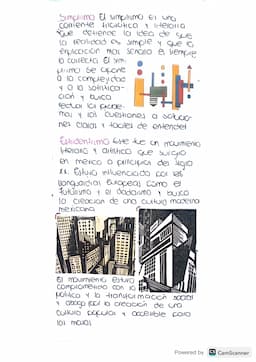 Simplismo El simplismo es una
corriente filosófica y literaria
que defiende la idea de que
la realidad es simple y que la
explicación mas sencilla es siempre
la correcta. El sim-
plismo se opone
a la complejidad
y a la sofistica-
ción y busca
los proble-
mas y las cuestiones a solucio-
nes claras y faciles de entender
Estridentismo Este fue un movimiento
literario y artístico que surgio
en mexico a principios del siglo
xx. Estuvo influenciado por las
vanguardias Europeas como el
futurismo y el dadaismo y busco
la creacion de una cultura moderna
mexicana
El movimiento estuvo
comprometido con la
politica y la transformación social
y abogo por la creación de una
cultura popular y accesible para
las masas
Powered by CS CamScanner